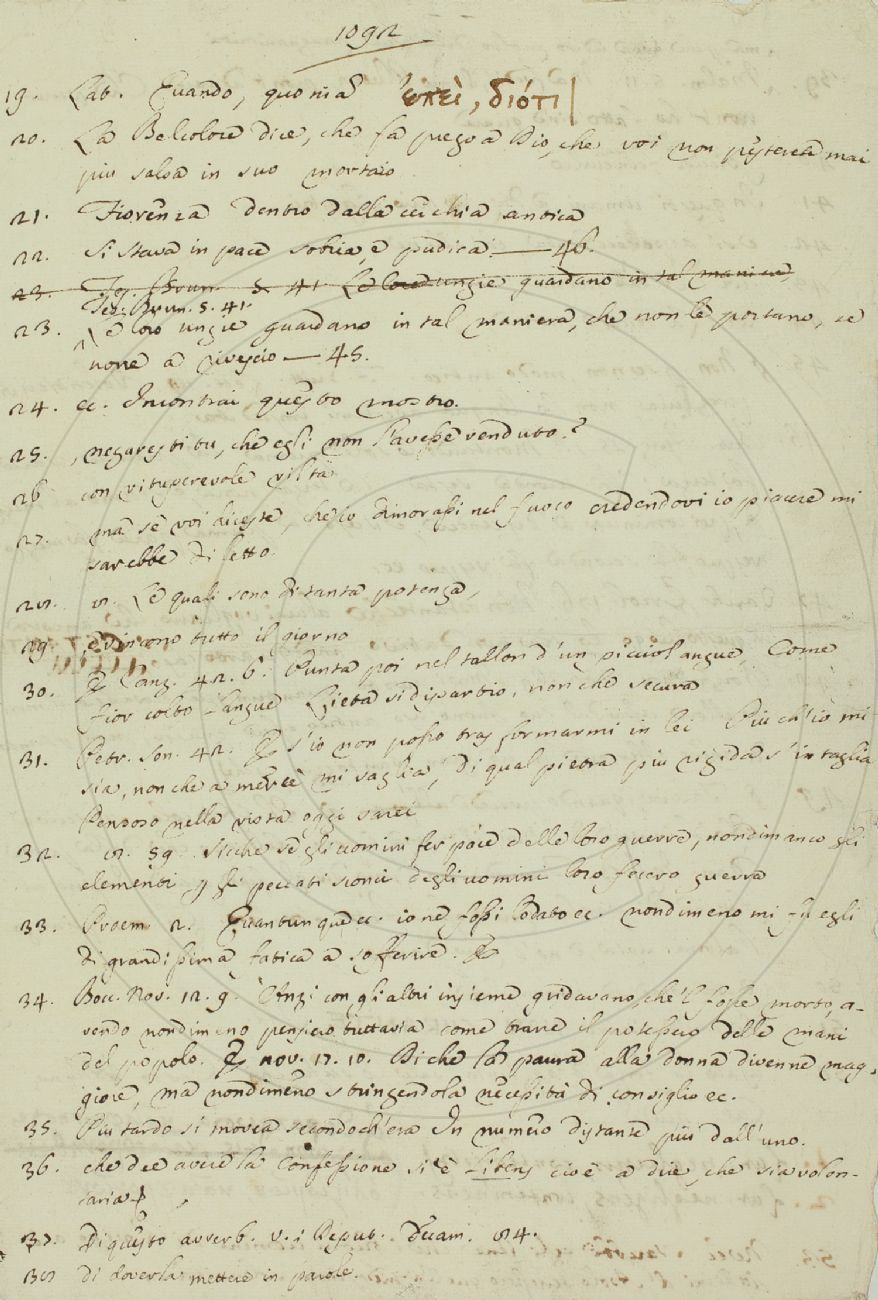 1092
19. Lab. Quando, quonia ἐπεὶ, διότι
20. La Belcolore dice, che fa prego a Dio, che voi non pesterete mai
piu salsa in suo mortaio
21. Fiorenza dentro dalla cerchia antica
22. Si stava in pace sobria, e pudica — 46.
23. Te. Brun. 5. 41 Le loro ungie guardano in tal maniera,
Tes. Brun. 5. 41.
23. e loro ungie guardano in tal maniera, che non le portano, se
none a rivescio — 45.
24. ec. Incontrai questo mostro.
25. , negaresti tu, che egli non l'avesse venduto?
26 con vituperevole viltà
27. ma se voi diceste, ch'io dimorassi nel fuoco credendovi io piacere mi
sarebbe diletto.
28. 8. Le quali sono di tanta potenza,
29. , e dicono tutto il giorno
30. Canz. 42. 6. Punta poi nel tallon d'un picciol angue, Come
fior colto langue Lieta si dipartio, non che secura
31. Petr. Son. 42. E s'io non posso trasformarmi in lei Più ch'io mi
sia, non che a mercè mi vaglia, Di qual pietra piu rigida s'intaglia
Pensoso nella vista oggi sarei
32. 8. 59. Sicche se gli uomini fer pace delle loro guerre, nondimanco gli
elementi p gli peccati sconci degli uomini loro fecero guerra
33. Proem. 2. Quantunque ec. io ne fossi lodato ec. nondimeno mi fu egli
di grandissima fatica a sofferire.
34. Bocc. Nov. 12. 9. Anzi con gli altri insieme gridavano, che 'l fosse morto, a-
vendo nondimeno pensiero tuttavia come trarre il potessero delle mani
del popolo. E nov. 17. 10. Di che la paura alla donna divenne mag-
giore, ma nondimeno stringendola necessità di consiglio ec.
35. Più tardo si movea secondoch'era In numero distante più dall'uno.
36. che dee avere la Confessione si è Libens cioè a dire, che sia volon-
taria
37. Di questo avverb. v. i Deput. Decam. 84.
38 di doverla mettere in parole.